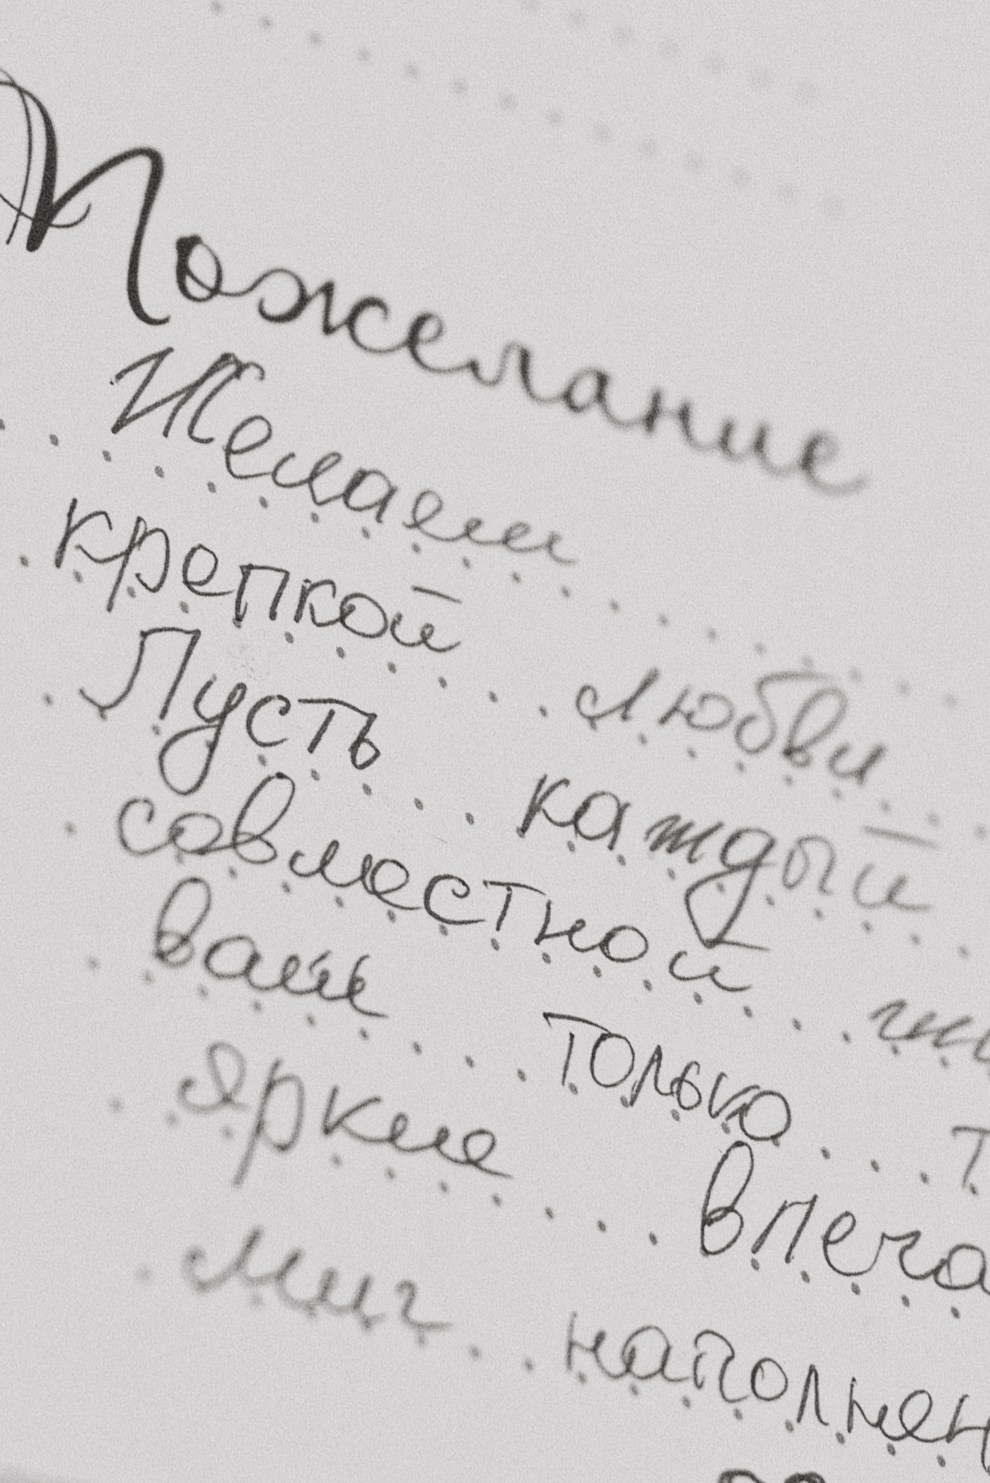 Пожелание
Желаем
крепкой любви
Пусть каждый
совместной
вам только
яркие
миг